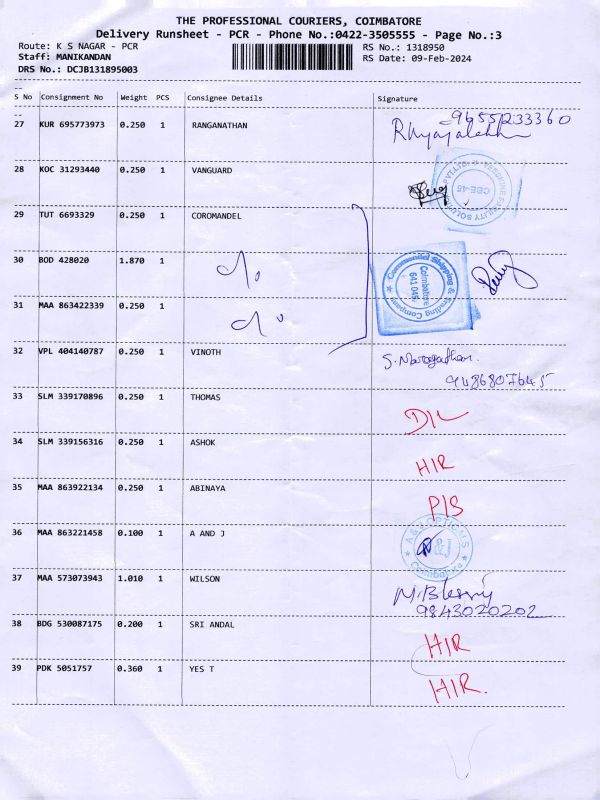 THE PROFESSIONAL COURIERS, COIMBATORE
Delivery Runsheet - PCR - Phone No.:0422-3505555 - Page No.:3
Route: K S NAGAR - PCR RS No.: 1318950
Staff: MANIKANDAN RS Date: 09-Feb-2024
DRS No.: DCJB131895003
S No Consignment No Weight PCS Consignee Details Signature
27 KUR 695773973 0.250 1 RANGANATHAN
9655233360
28 KOC 31293440 0.250 1 VANGUARD
CBE-45
29 TUT 6693329 0.250 1 COROMANDEL
30 BOD 428020 1.870 1
Commandel Shipping & Trading Company
Coimbatore
641 045
31 MAA 863422339 0.250 1
32 VPL 404140787 0.250 1 VINOTH
9486807645
33 SLM 339170896 0.250 1 THOMAS
D/L
34 SLM 339156316 0.250 1 ASHOK
H/R
35 MAA 863922134 0.250 1 ABINAYA
P/S
36 MAA 863221458 0.100 1 A AND J
A & J OPTICALS
A&J
Coimbatore
37 MAA 573073943 1.010 1 WILSON
M. Blessy
9843020202
38 BDG 530087175 0.200 1 SRI ANDAL
H/R
39 PDK 5051757 0.360 1 YES T
H/R.